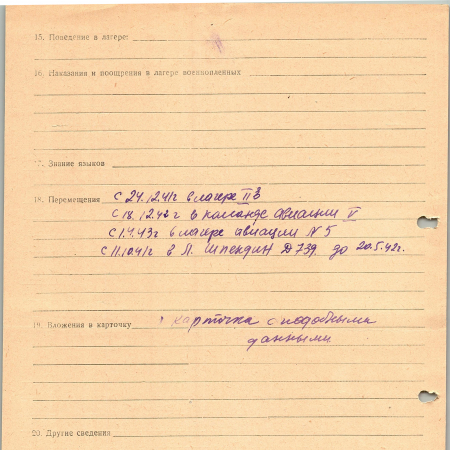 15. Поведение в лагере:
16. Наказания и поощрения в лагере военнопленных
17. Знание языков
18. Перемещения с 24.12.41г в лагере II В
с 18.12.42 г в команде авиации V
с 1.4.43г в лагере авиации N 5
с 11.10.41г в Л. Шпендин Д 739 до 20.5.42г.
19. Вложения в карточку 1 карточка с подобными
данными
20. Другие сведения